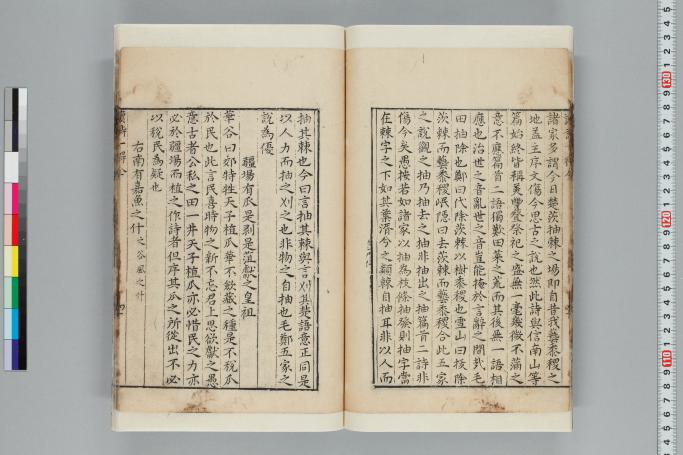 諸家多謂今日楚茨抽棘之場即自昔我藝黍稷之
地蓋主序文傷今思古之說也然此詩與信南山等
篇始終皆稱美豐登祭祀之盛無一毫幾微不滿之
意不應篇首二語獨歎田萊之荒而其後無一語相
應也治世之音亂世之音豈能掩於言辭之間哉毛
曰抽除也鄭曰代除茨棘以樹黍稷也雪山曰抜除
茨棘而藝黍稷岷隱曰去茨棘而藝黍稷合此五家
之說觀之抽乃抽去之抽非抽出之抽篇首二詩非
傷今矣愚按若如諸家以抽為枝條抽發則抽字當
在棘字之下如其葉湑兮之類棘自抽耳非以人而
抽其棘也今曰言抽其棘與言刈其楚語意正同是
以人力而抽之刈之也非物之自抽也毛鄭五家之
說為優
疆場有瓜是剥是菹獻之皇祖
華谷曰郊特牲天子植瓜華不斂藏之種是不稅瓜
於民也此言民喜時物之新不忘君上思欲獻之愚
意古者公私之田一井天子植瓜亦必惜民之力亦
必於疆場而植之作詩者但序其瓜之所從出不必
以稅民為疑也
右南有嘉魚之什
130
120
110